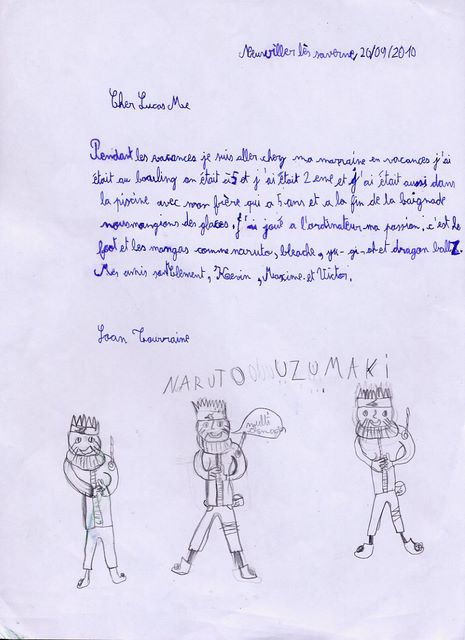 Neuwiller lès saverne, 20/09/2010
Cher Lucas Me
Pendant les vacances je suis aller chez ma marraine en vacances j'ai
était au bouling on était a 5 et j'ai était 2 eme et j'ai était aussi dans
la piscine avec mon frère qui a 5 ans et a la fin de la baignade
nous mangions des glaces. J'ai joué a l'ordinateur ma passion, c'est le
foot et les mangas comme naruto, bleache, yu-gi-oh et dragon ball Z.
Mes amis sont Clément, Kevin, Maxime et Victor.
Loan Tourraine
NARUTO UZUMAKi
multi